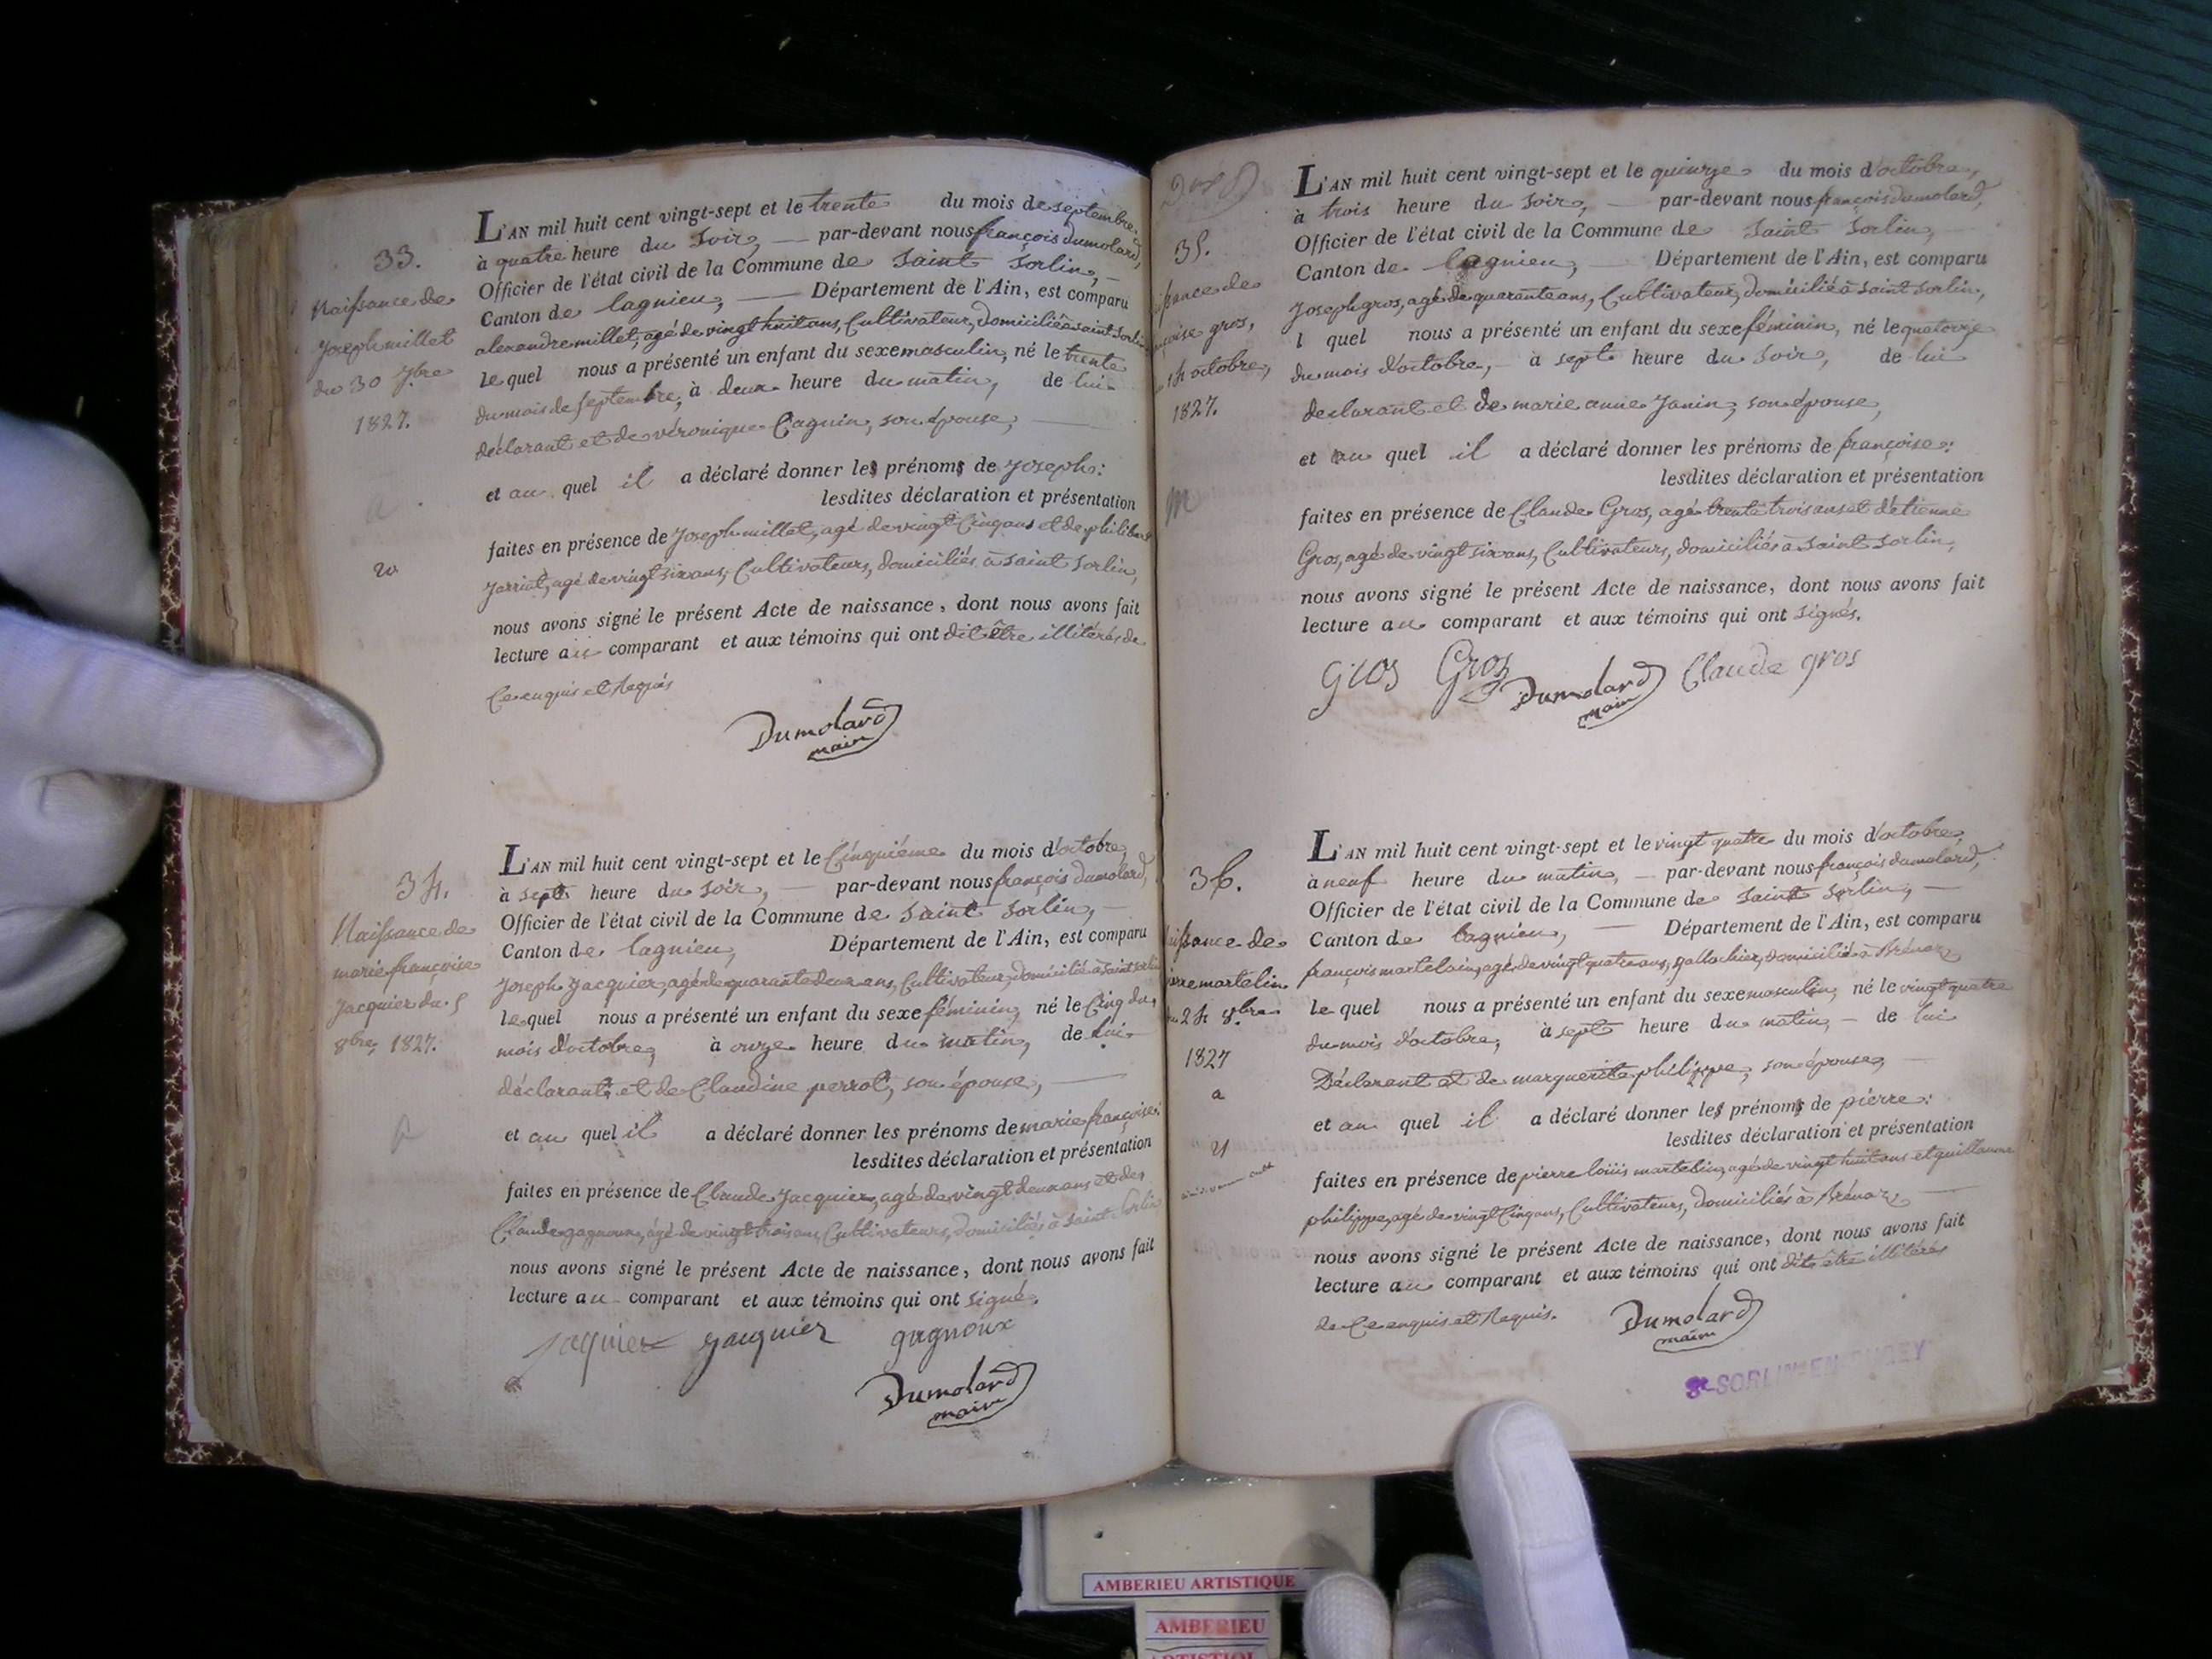 33.
Naissance de
Joseph millet
du 30 7bre
1827.
L'AN mil huit cent vingt-sept et le trente du mois de septembre,
à quatre heure du soir, — par-devant nous françois dumolard,
Officier de l'état civil de la Commune de Saint Sorlin, —
Canton de lagnieu, — Département de l'Ain, est comparu
alexandre millet, agé de vingt huit ans, Cultivateur, domicilié à saint Sorlin
le quel nous a présenté un enfant du sexe masculin, né le trente
du mois de septembre, à deux heure du matin, de lui
déclarant et de véronique Cagnin, son épouse,
et au quel il a déclaré donner les prénoms de Joseph:
lesdites déclaration et présentation
faites en présence de Joseph millet, agé de vingt Cinq ans et de philibert
Jarriat, agé de vingt six ans, Cultivateurs, domiciliés à Saint Sorlin,
nous avons signé le présent Acte de naissance, dont nous avons fait
lecture au comparant et aux témoins qui ont dit être illitérés de
Ce enquis et Requis
Dumolard
maire
34.
Naissance de
marie françoise
Jacquier du 5
8bre 1827.
L'AN mil huit cent vingt-sept et le Cinquième du mois d'octobre,
à sept heure du soir, — par-devant nous françois dumolard,
Officier de l'état civil de la Commune de Saint Sorlin, —
Canton de lagnieu, Département de l'Ain, est comparu
Joseph Jacquier, agé de quarante deux ans, Cultivateur, domicilié à Saint Sorlin
le quel nous a présenté un enfant du sexe féminin, né le Cinq du
mois d'octobre, à onze heure du matin, de lui
déclarant et de Claudine perrot, son épouse, —
et au quel il a déclaré donner les prénoms de marie françoise:
lesdites déclaration et présentation
faites en présence de Claude Jacquier, agé de vingt deux ans et de
Claude gagnoux, agé de vingt trois ans, Cultivateurs, domiciliés à Saint Sorlin
nous avons signé le présent Acte de naissance, dont nous avons fait
lecture au comparant et aux témoins qui ont signé.
Jaquier Jacquier gagnoux
Dumolard
maire
35.
gros,
14 octobre,
1827.
L'AN mil huit cent vingt-sept et le quinze du mois d'octobre,
à trois heure du soir, — par-devant nous françois dumolard,
Officier de l'état civil de la Commune de Saint Sorlin,
Canton de lagnieu, — Département de l'Ain, est comparu
Joseph gros, agé de quarante ans, Cultivateur, domicilié à Saint Sorlin,
l quel nous a présenté un enfant du sexe féminin, né le quatorze
du mois d'octobre, — à sept heure du soir, de lui
declarant et de marie anne Janin, son épouse,
et au quel il a déclaré donner les prénoms de françoise:
lesdites déclaration et présentation
faites en présence de Claude Gros, agé trente trois ans et d'étienne
Gros, agé de vingt six ans, Cultivateurs, domiciliés à Saint Sorlin,
nous avons signé le présent Acte de naissance, dont nous avons fait
lecture au comparant et aux témoins qui ont signés.
Gros Gros Dumolard Claude gros
maire
36.
martelin
24 8bre
1827
L'AN mil huit cent vingt-sept et le vingt quatre du mois d'octobre,
à neuf heure du matin, — par-devant nous françois dumolard,
Officier de l'état civil de la Commune de Saint Sorlin, —
Canton de lagnieu, — Département de l'Ain, est comparu
françois martelain, agé de vingt quatre ans, domicilié à Brénaz
le quel nous a présenté un enfant du sexe masculin, né le vingt quatre
du mois d'octobre, à sept heure du matin, — de lui
Déclarant et de marguerite philippe, son épouse, —
et au quel il a déclaré donner les prénoms de pierre:
lesdites déclaration et présentation
faites en présence de pierre loüis martelin, agé de vingt huit ans et guillaume
philippe, agé de vingt Cinq ans, Cultivateurs, domiciliés à Brénaz
nous avons signé le présent Acte de naissance, dont nous avons fait
lecture au comparant et aux témoins qui ont dit être illitérés
de Ce enquis et Requis. Dumolard
maire
St-SORLIN-EN-BUGEY
AMBERIEU ARTISTIQUE
AMBERIEU